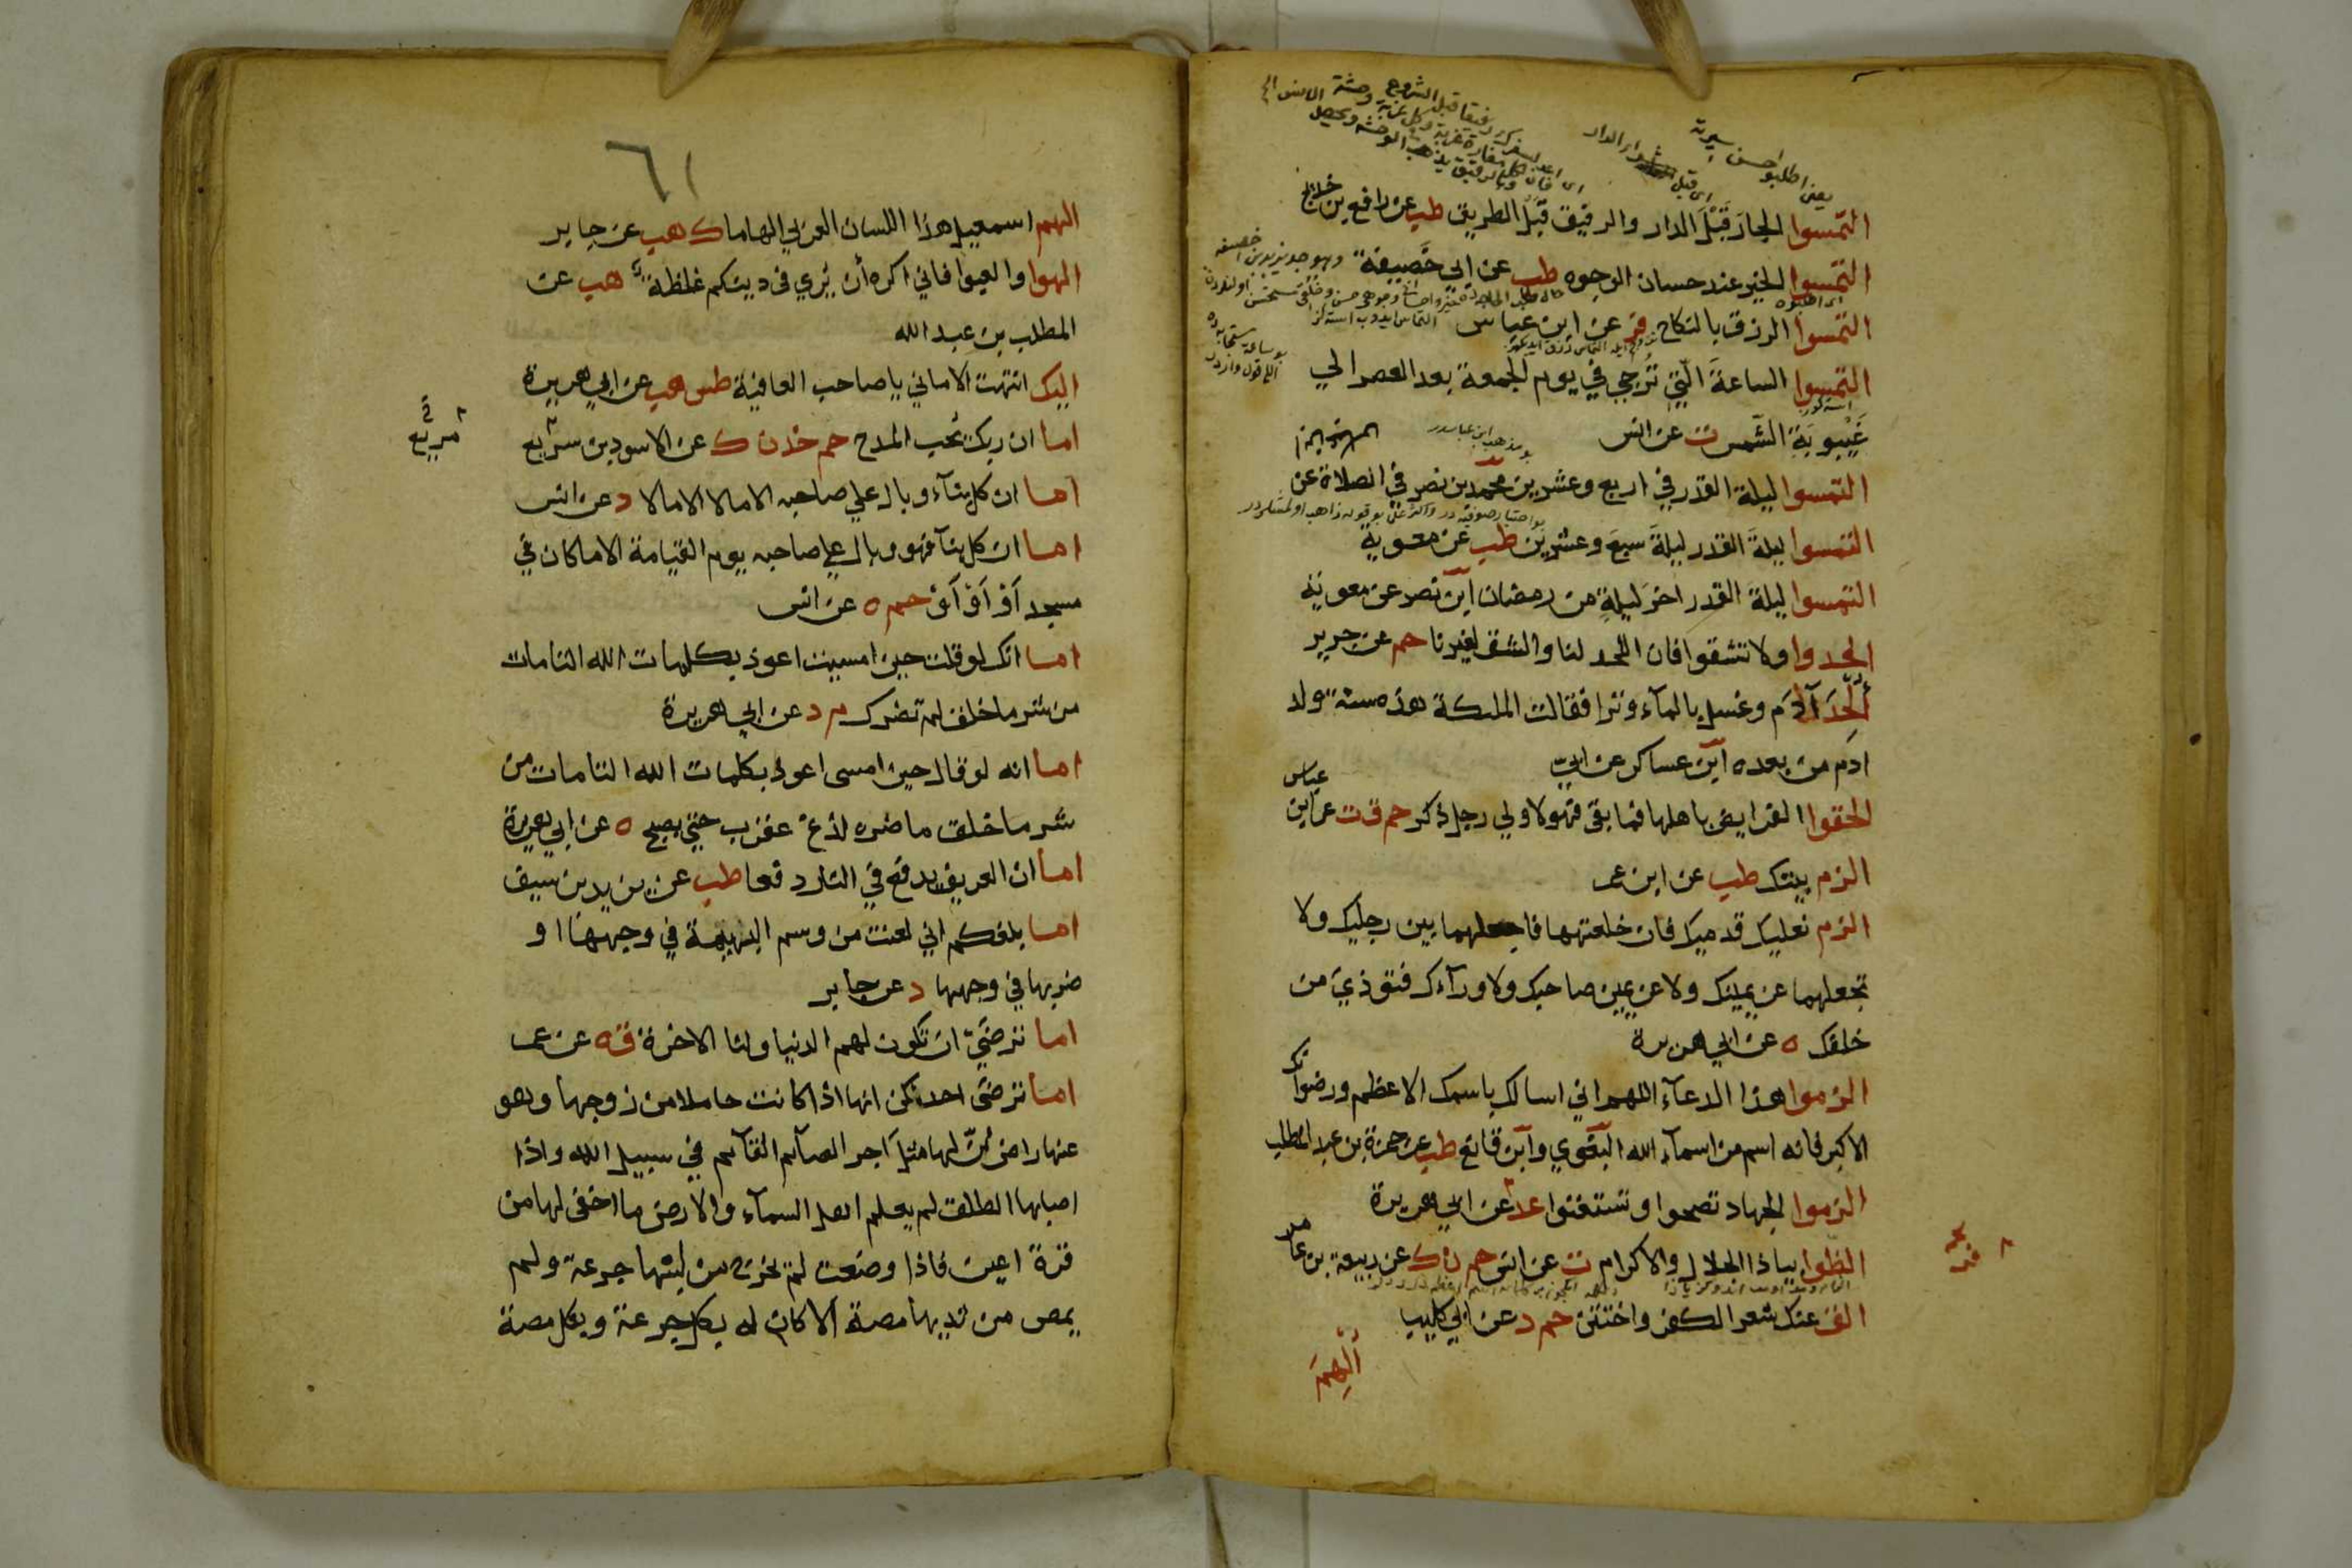 التمسوا الجار قبل الدار والرفيق قبل الطريق طب عن رافع بن خديج
التمسوا الخير عند حسان الوجوه طب عن ابي خصيفة
التمسوا الرزق بالنكاح فر عن ابن عباس
التمسوا الساعة التي ترجي في يوم الجمعة بعد العصر الي
غيبوبة الشمس ت عن انس
التمسوا ليلة القدر في اربع وعشرين محمد بن نصر في الصلاة عن
التمسوا ليلة القدر ليلة سبع وعشرين طب عن معوية
التمسوا ليلة القدر اخر ليلة من رمضان ابن نصر عن معوية
الحدوا ولا تشقوا فان اللحد لنا والشق لغيرنا حم عن جرير
ألحد آدم وغسل بالمآء وترا فقالت الملئكة هذه سنة ولد
ادم من بعده ابن عساكر عن ابي
الحقوا الفرايض باهلها فما بقي فهو لاولي رجل ذكر حم ق ت عن ابن عباس
الزم بيتك طب عن ابن عمر
الزم نعليك قدميك فان خلعتهما فاجعلهما بين رجليك ولا
تجعلهما عن يمينك ولا عن يمين صاحبك ولا ورآءك فتوذي من
خلفك ه عن ابي هريرة
الزموا هذا الدعآء اللهم اني اسالك باسمك الاعظم ورضوانك
الاكبر فانه اسم من اسمآء الله البغوي وابن قانع طب عن حمزة بن عبد المطلب
الزموا الجهاد تصحوا وتستغنوا عد عن ابي هريرة
الظوا بياذا الجلال والاكرام ت عن انس حم ن ك عن ربيعة بن عامر
الق عنك شعر الكفر واختتن حم د عن ابي كليب
ألهم
٦١
الهم اسمعيل هذا اللسان العربي الهاما ك هب عن جابر
الهوا والعبوا فاني اكره أن يري في دينكم غلظة هب عن
المطلب بن عبد الله
اليك انتهت الاماني يا صاحب العافية طس هب عن ابي هريرة
اما ان ربك يحب المدح حم خد ن ك عن الاسود بن سريع
اما ان كل بنآء وبال علي صاحبه الا مالا الا مالا د عن انس
اما ان كل بنآء فهو وبال علي صاحبه يوم القيامة الا ما كان في
مسجد أو أو أو حم ه عن انس
اما انك لو قلت حين امسيت اعوذ بكلمات الله التامات
من شر ما خلق لم تضرك م د عن ابي هريرة
اما انه لو قال حين امسى اعوذ بكلمات الله التامات من
شر ما خلق ما ضره لدغ عقرب حتي يصبح ه عن ابي هريرة
اما ان العريف يدفع في النار دفعا طب عن يزيد بن سيف
اما بلغكم اني لعنت من وسم البهيمة في وجهها او
ضربها في وجهها د عن جابر
اما ترضي ان تكون لهم الدنيا ولنا الاخرة ق ه عن عمر
اما ترضى احداكن انها اذا كانت حاملا من زوجها وهو
عنها راض أن لها مثل آجر الصآئم القآئم في سبيل الله واذا
اصابها الطلق لم يعلم اهل السمآء والارض ما اخفى لها من
قرة اعين فاذا وضعت لم يخرج من لبنها جرعة ولم
يمص من ثديها مصة الا كان له بكل جرعة وبكل مصة